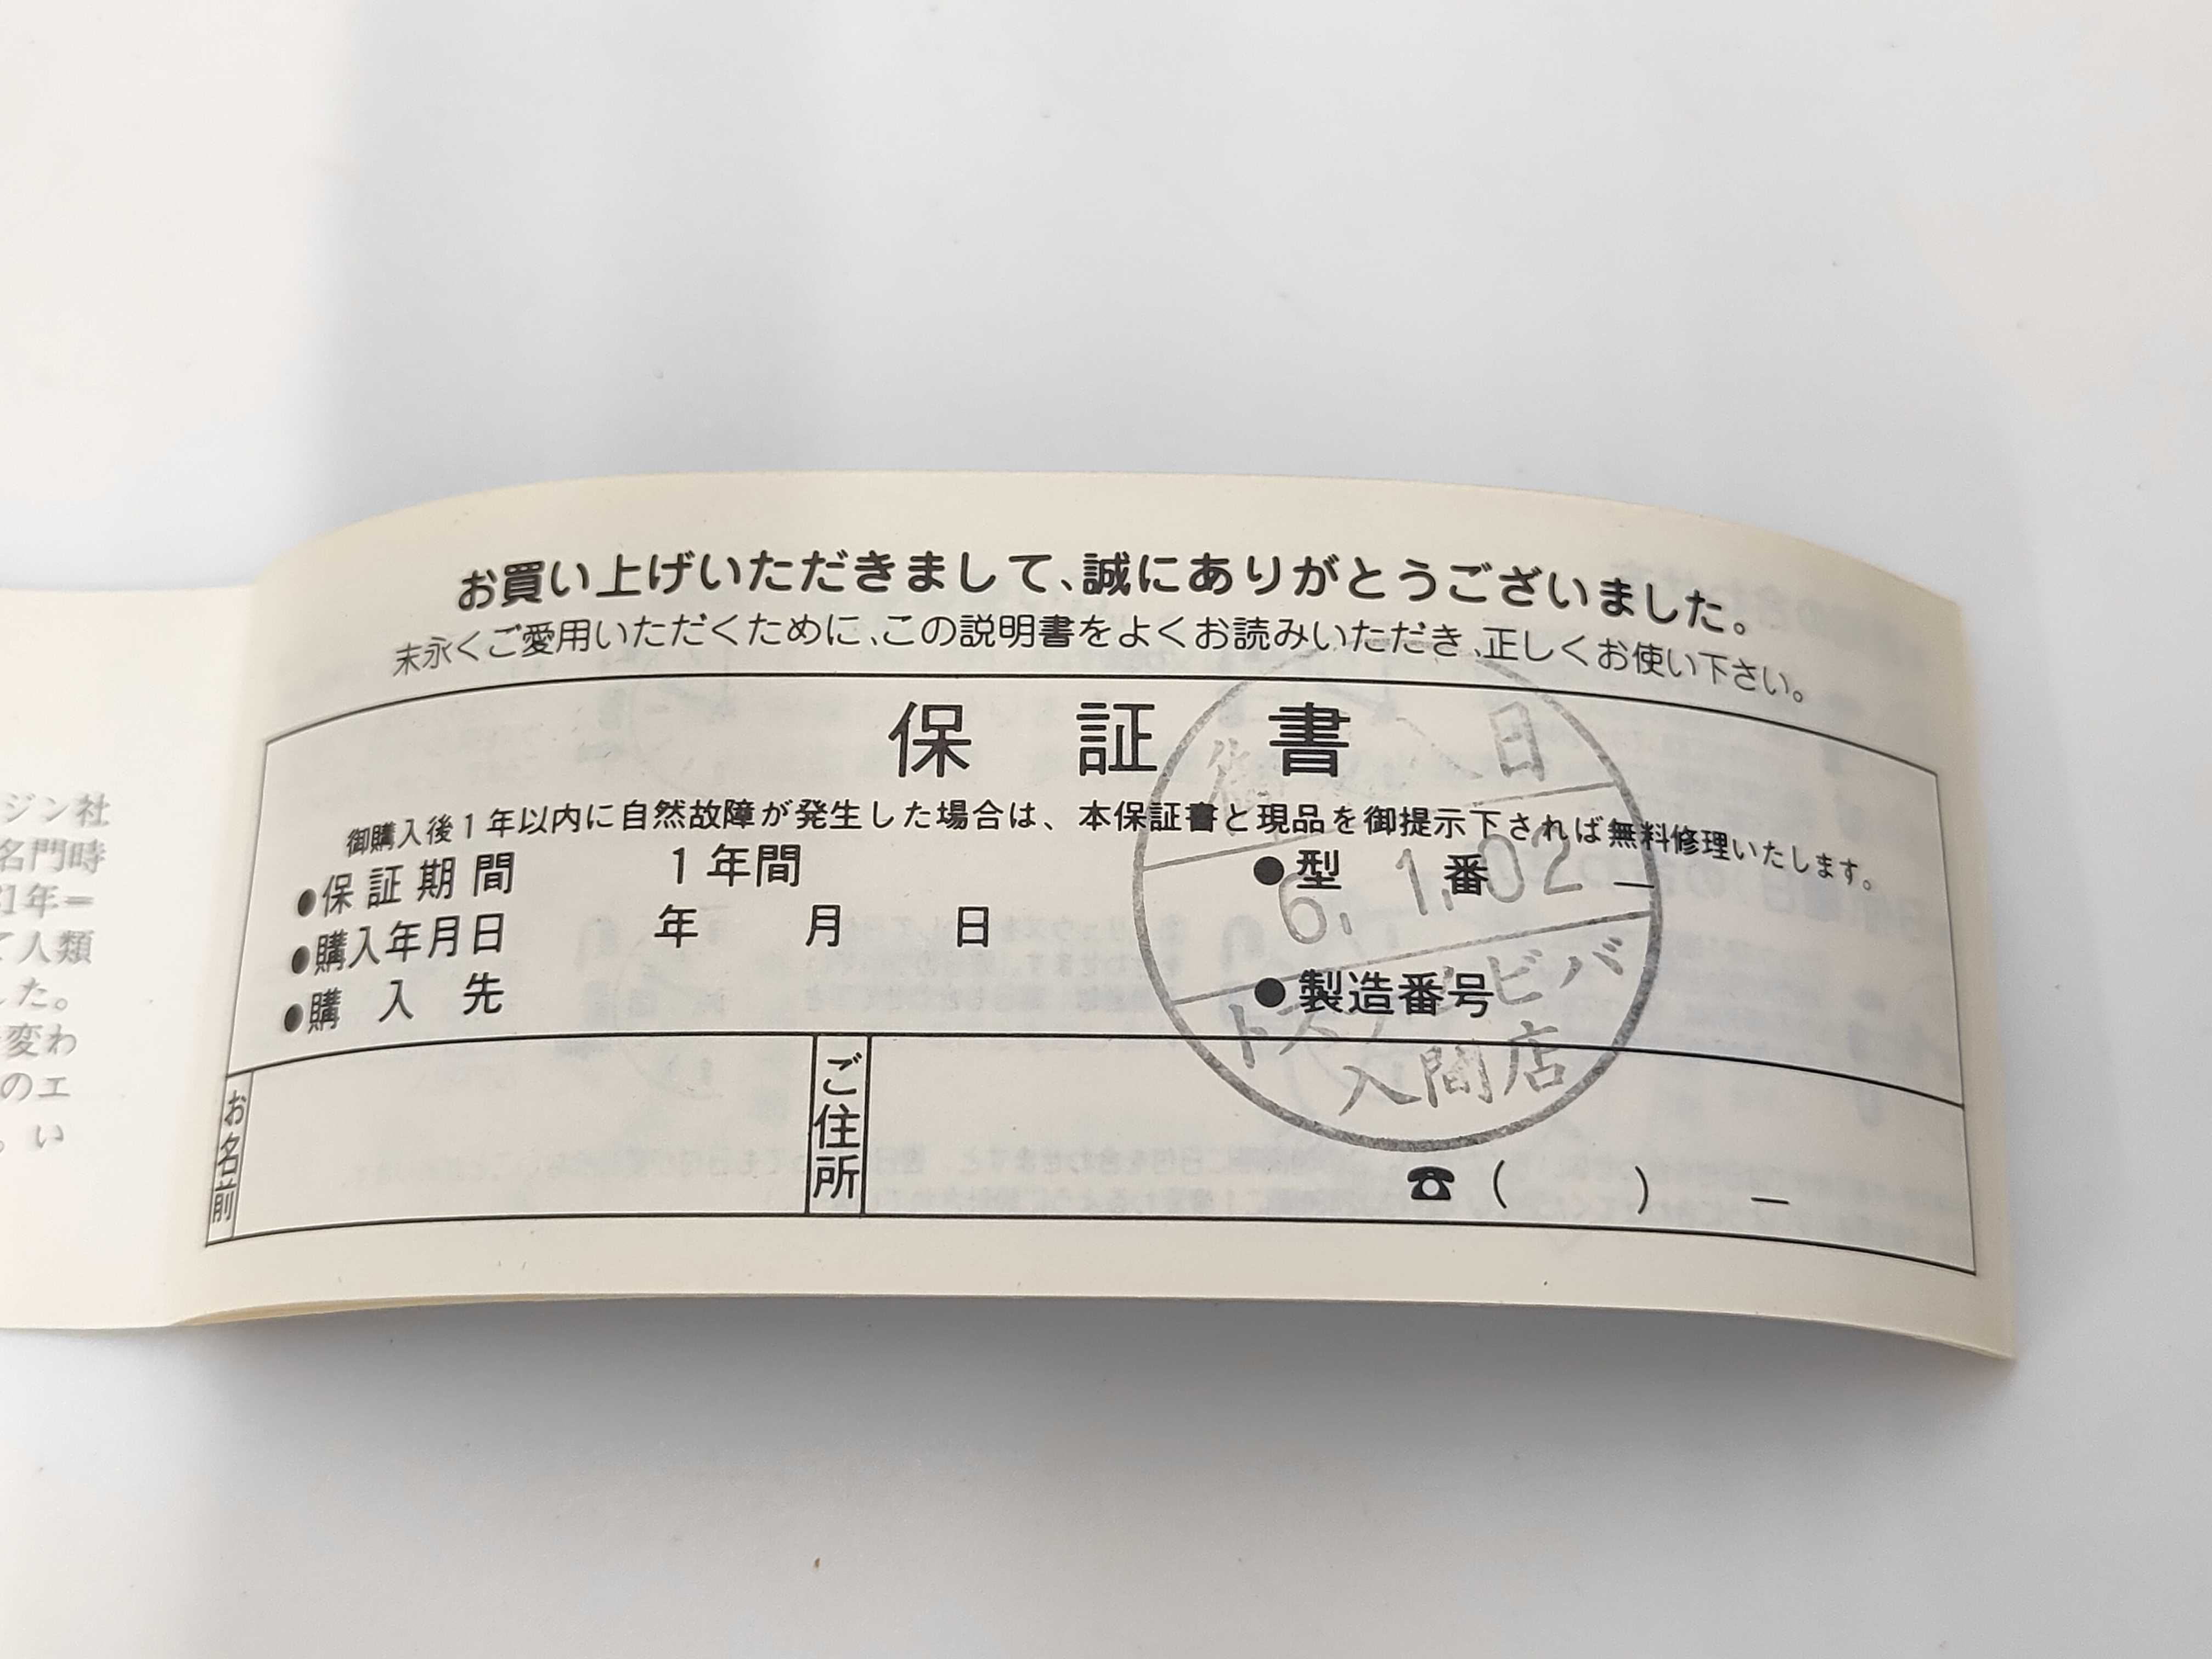 お買い上げいただきまして、誠にありがとうございました。
末永くご愛用いただくために、この説明書をよくお読みいただき、正しくお使い下さい。
保証書
御購入後1年以内に自然故障が発生した場合は、本保証書と現品を御提示下されば無料修理いたします。
●保証期間 1年間
●型番 —
●購入年月日 年 月 日
●購入先
●製造番号
お名前
ご住所
☎( ) —
日
6. 1.02
ビバ
入間店
ジン社
名門時
1年=
て人類
した。
変わ
のエ
。い